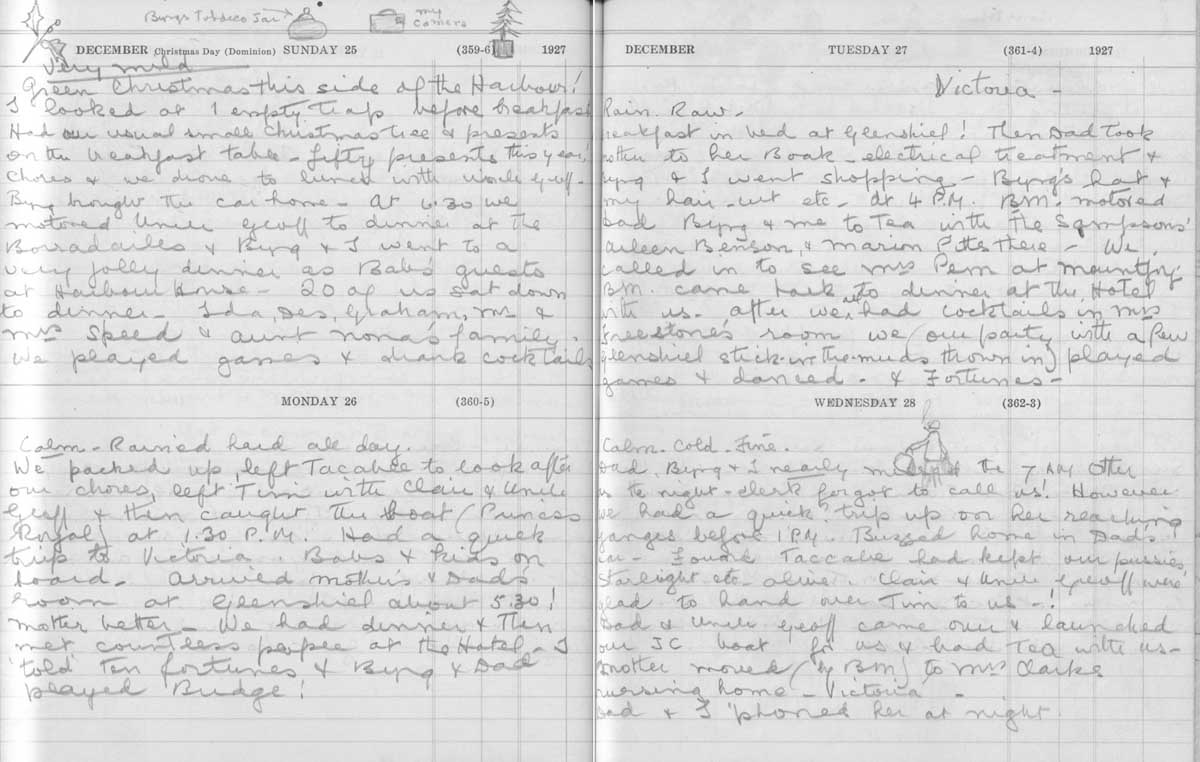 Byng's Tobacco Jar
my camera
DECEMBER Christmas Day (Dominion) SUNDAY 25 (359-6) 1927
Very mild
Green Christmas this side of the Harbour!
I looked at 1 empty trap before breakfast
Had our usual small Christmas tree & presents
on the breakfast table - fifty presents this year!
Chores & we drove to lunch with Uncle Geoff.
Byng brought the car home - At 6.30 we
motored Uncle Geoff to dinner at the
Borradailes & Byng & I went to a
very jolly dinner as Babs' guests
at Harbour House - 20 of us sat down
to dinner - Ida, Des, Graham, Mr &
Mrs Speed & aunt Nona's family.
We played games & drank cocktails
MONDAY 26 (360-5)
Calm - Rained hard all day.
We packed up, left Tacahee to look after
our chores, left Tim with Clair & Uncle
Geoff & then caught the boat (Princess
Royal) at 1.30 P.M. Had a quick
trip to Victoria. Babs & kids on
board - Arrived Mother's & Dad's
room at Glenshiel about 5.30!
Mother better - We had dinner & then
met countless people at the Hotel - I
'told' ten fortunes & Byng & Dad
played Bridge!
DECEMBER TUESDAY 27 (361-4) 1927
Victoria -
Rain. Raw -
breakfast in bed at Glenshiel! Then Dad took
mother to her Book - electrical treatment &
Byng & I went shopping - Byng's hat &
my hair-cut etc - At 4 P.M. B.M. motored
Dad Byng & me to Tea with The Sympsons'
Aileen Benson, & Marion Pitts there - We
called in to see Mrs Pem at
B.M. came back to dinner at the Hotel
with us. After we had cocktails in Mrs
Freestone's room we (our party with a few
Glenshiel stick-in-the-muds thrown in) played
games & danced - & Fortunes -
WEDNESDAY 28 (362-3)
Calm - Cold - Fine.
Dad, Byng & I nearly the 7 AM Otter
as the night-clerk forgot to call us! However
we had a quick trip up on her reaching
Ganges before 1 P.M. Buzzed home in Dad's
car - Found Taccahe had kept our pussies,
Starlight etc - alive. Clair & Uncle Geoff were
glad to hand over Tim to us - !
Dad & Uncle Geoff came over & launched
our JC boat for us & had Tea with us -
Mother moved (by BM) to Mrs Clarke
nursing home - Victoria -
Dad & I 'phoned her at night.